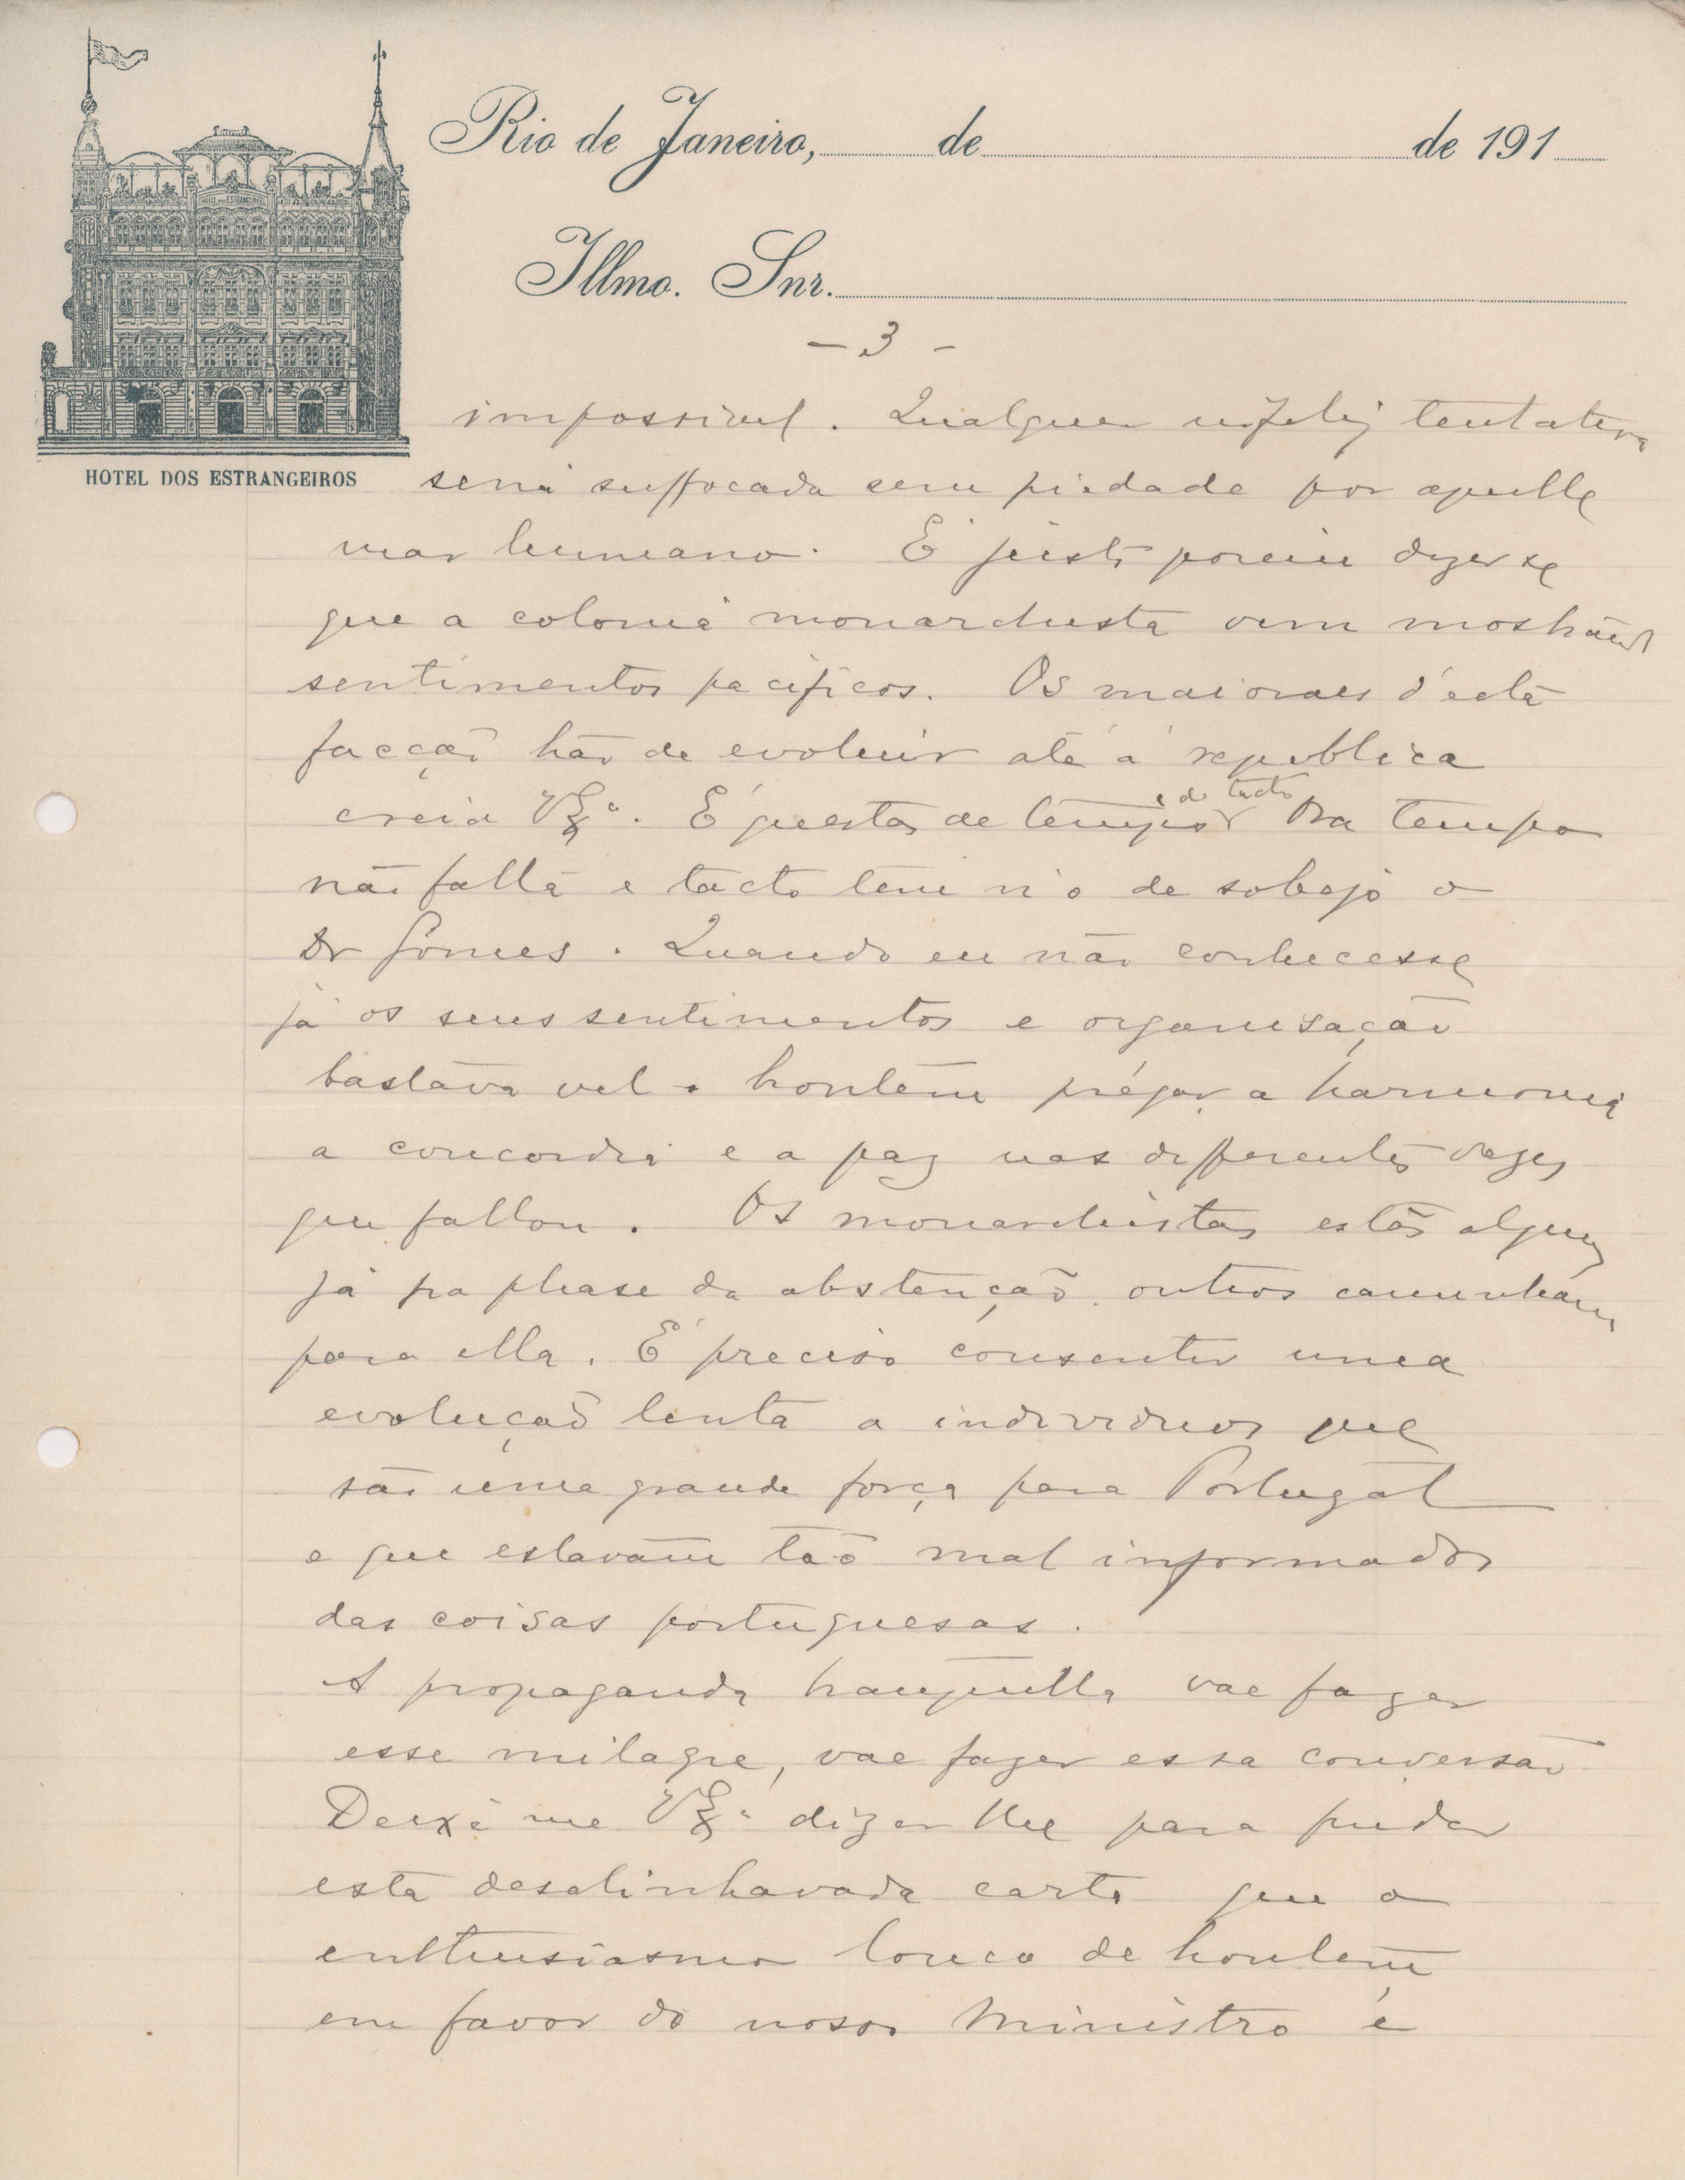 Rio de Janeiro, de de 191
Illmo. Snr.
HOTEL DOS ESTRANGEIROS
- 3 -
impossivel. Qualquer infeliz tentativa
seria suffocada sem piedade por aquelle
mar humano. É justo porem dizer se
que a colonia monarchista vem mostrando
sentimentos pacificos. Os maioraes d'esta
facção hão de evoluir até á republica
creia VExª. É questão de tempo e de tacto Ora tempo
não falta e tacto tem n'o de sobejo o
Dr Gomes. Quando eu não conhecesse
já os seus sentimentos e organisação
bastava vel o hontem prégar a harmonia
a concordia e a paz nas differentes vezes
que fallou. Os monarchistas estão alguns
já na phase da abstenção outros caminham
para ella. É preciso consentir uma
evolução lenta a individuos que
são uma grande força para Portugal
e que estavam tão mal informados
das coisas portuguesas.
A propaganda tranquilla vae fazer
esse milagre, vae fazer essa conversão
Deixe me VExª dizer lhe para findar
esta desalinhavada carta que o
enthusiasmo louco de hontem
em favor do nosso Ministro é